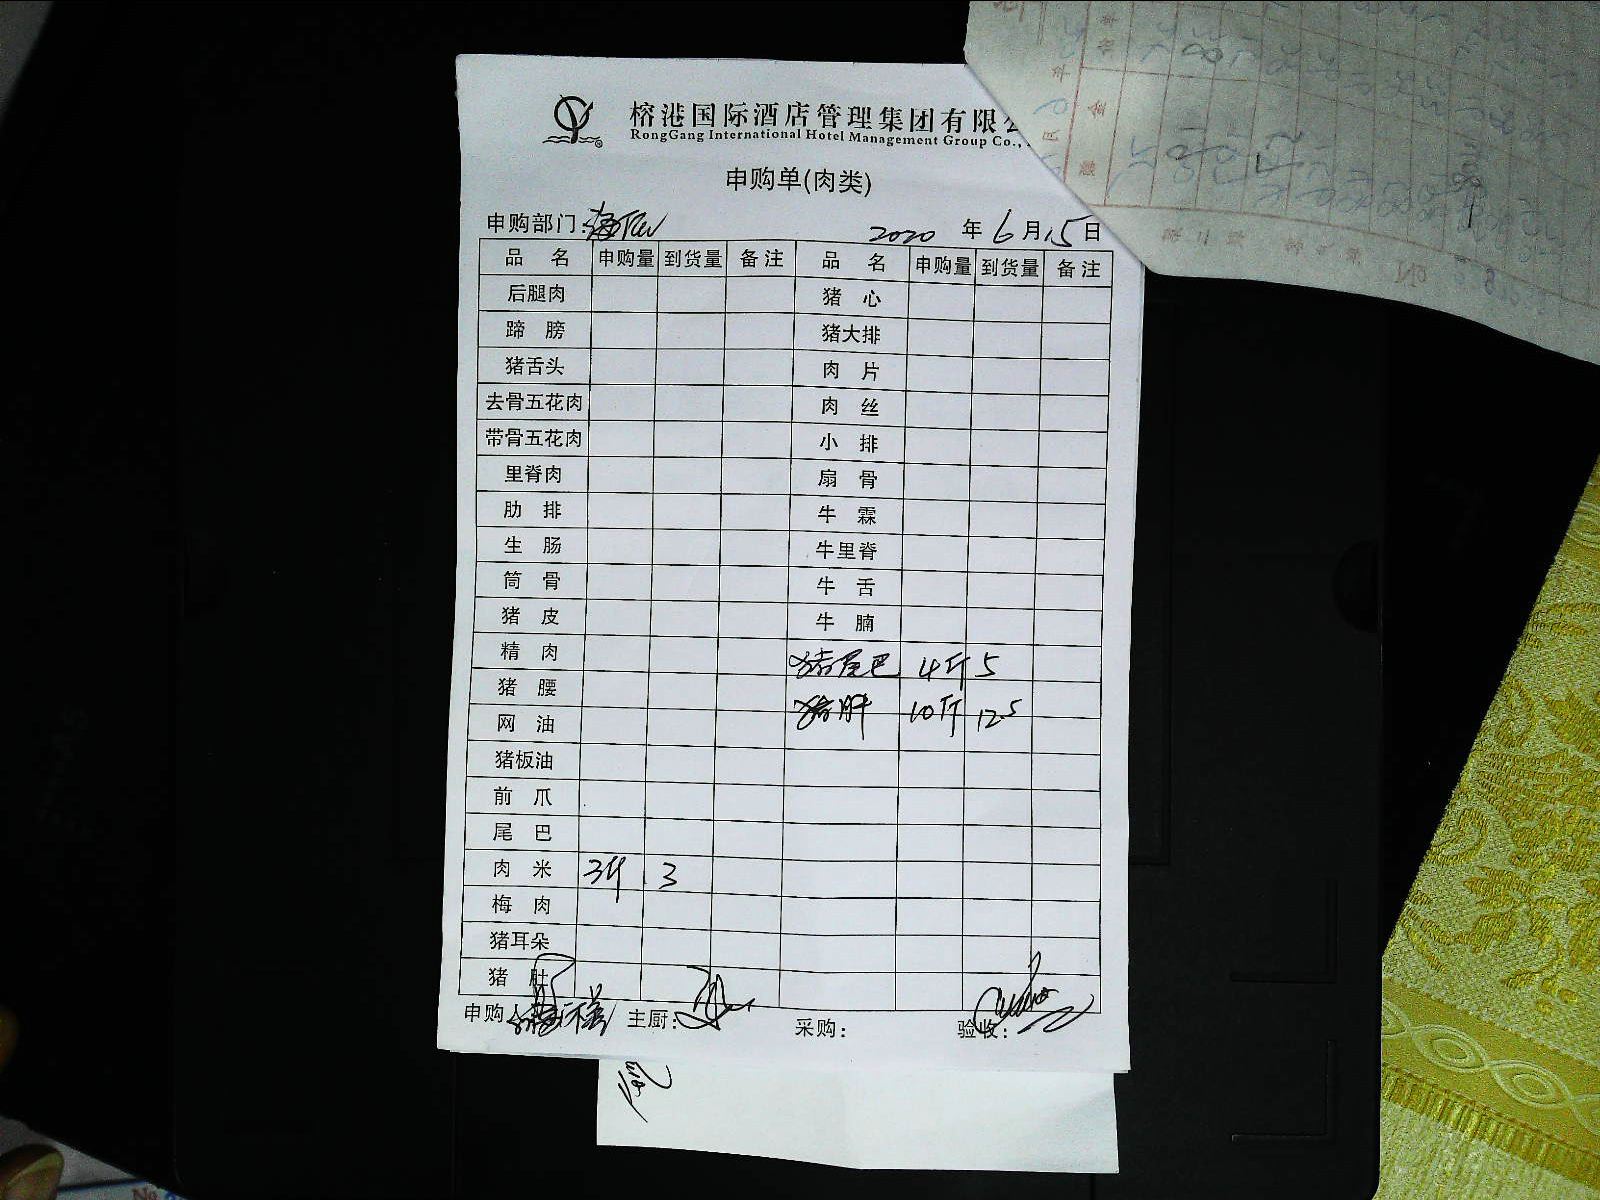 榕港国际酒店管理集团有限
RongGang International Hotel Management Group Co.,
申购单(肉类)
申购部门: 2020 年 6 月 15 日
品 名 申购量 到货量 备注 品 名 申购量 到货量 备注
后腿肉 猪 心
蹄 膀 猪大排
猪舌头 肉 片
去骨五花肉 肉 丝
带骨五花肉 小 排
里脊肉 扇 骨
肋 排 牛 霖
生 肠 牛里脊
筒 骨 牛 舌
猪 皮 牛 腩
精 肉 猪尾巴 4斤 5
猪 腰 猪肝 10斤 12.5
网 油
猪板油
前 爪
尾 巴
肉 米 3斤 3
梅 肉
猪耳朵
猪 肚
申购人 主厨: 采购: 验收: